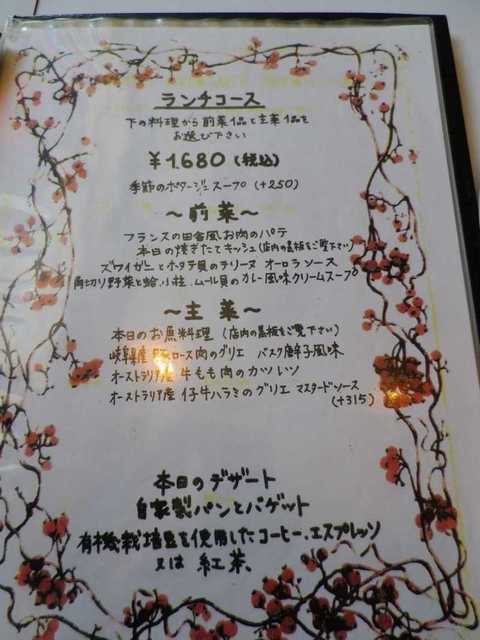 ランチコース
下の料理から前菜1品と主菜1品を
お選び下さい
¥1,680 (税込)
季節のポタージュスープ (+250)
～前菜～
フランスの田舎風お肉のパテ
本日の焼きたてキッシュ(店内の黒板をご覧下さい)
ズワイガニとホタテ貝のテリーヌ オーロラソース
角切り野菜と蛤、小柱、ムール貝のカレー風味クリームスープ
～主菜～
本日のお魚料理 (店内の黒板をご覧下さい)
岐阜県産 豚ロース肉のグリエ バスク唐辛子風味
オーストラリア産 牛もも肉のカツレツ
オーストラリア産 仔牛ハラミのグリエ マスタードソース
(+315)
本日のデザート
自家製パンとバゲット
有機栽培豆を使用したコーヒー、エスプレッソ
又は 紅茶、